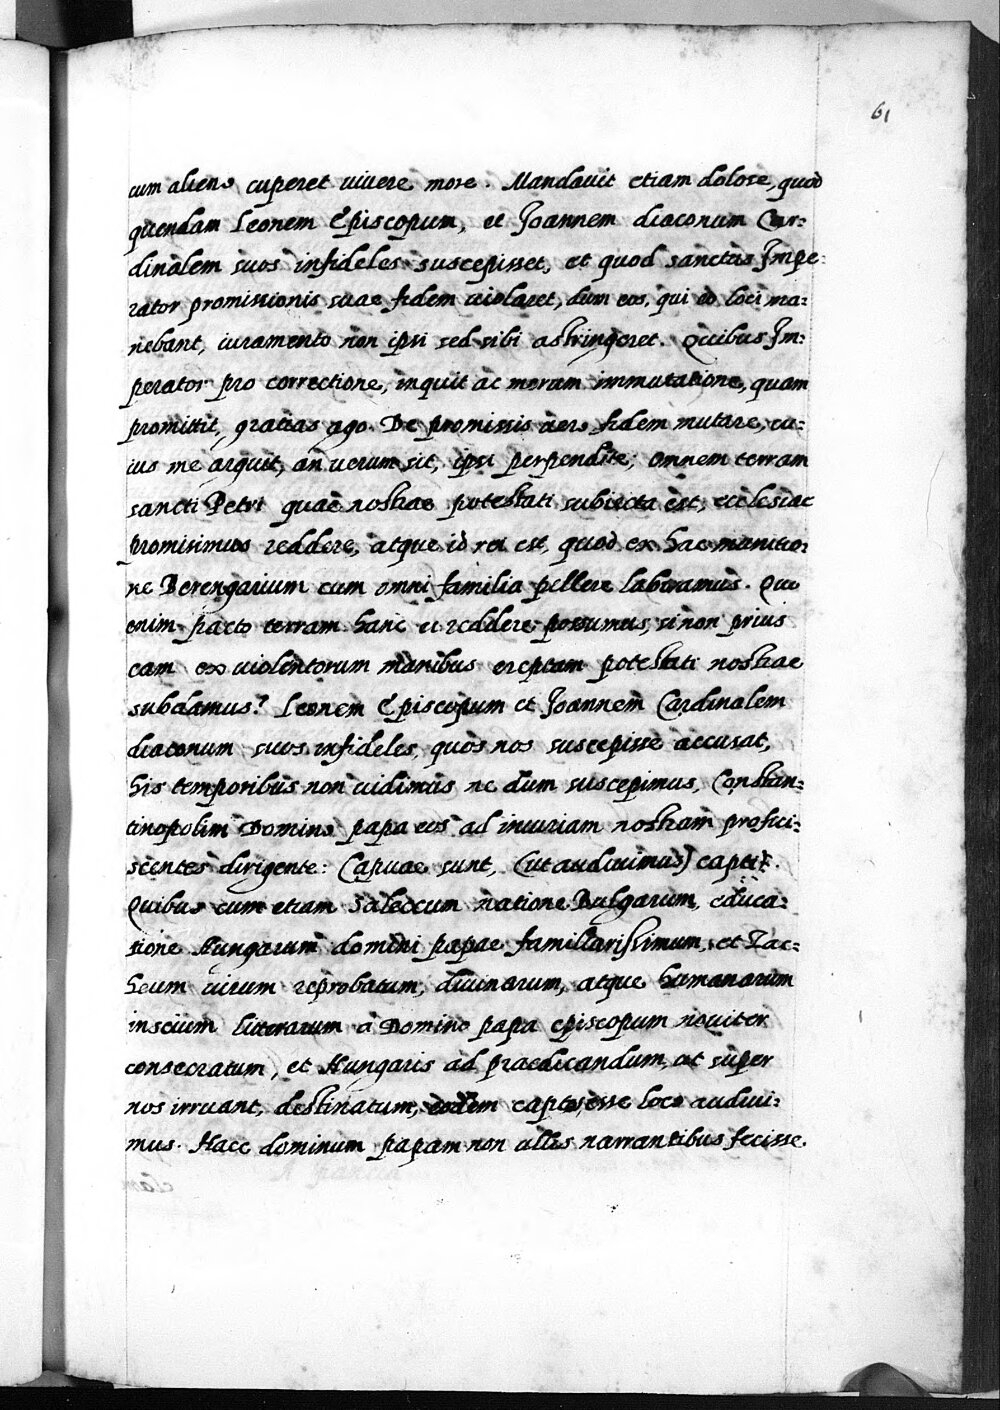 61
cum aliens cuperet vivere more. Mandavit etiam dolose, quod
quendam Leonem Episcopum, et Joannem diaconum Car:
dinalem suos infideles suscepisset, et quod sanctus Impe:
rator promissionis suae fidem violaret, dum eos, qui eo loci ma:
nebant, iuramento non ipsi sed sibi astringeret. Quibus Im:
perator pro correctione, inquit ac morum immutatione, quam
promittit, gratias ago. De promissis aero fidem mutare, cu:
ius me arguit, an verum sit, ipsi perpendite; omnem terram
sancti Petri quae nostrae potestati subiecta est, ecclesiae
promisimus reddere, atque id rei est, quod ex hac munitio:
ne Berengarium cum omni familia pellere laboramus. Quo
enim pacto terram hanc ei reddere possumus, si non prius
eam ex violentorum manibus ereptam potestati nostrae
subdamus? Leonem Episcopum et Joannem Cardinalem
diaconum suos infideles, quos nos suscepisse accusat,
his temporibus non vidimus ne dum suscepimus, Constan:
tinopolim Domino papa eos ad iniuriam nostram profici:
scentes dirigente: Capuae sunt, (ut audivimus) capti.
Quibus cum etiam Saleccum natione Bulgarum, educa:
tione Hungarum domini papae familiarissimum, et Zac:
heum virum reprobatum, divinarum, atque humanarum
inscium litterarum a Domino papa episcopum noviter
consecratum, et Hungaris ad praedicandum, ut super
nos irruant, destinatum, eodem captos esse loco audivi:
mus. Haec dominum papam non allis narrantibus fecisse.